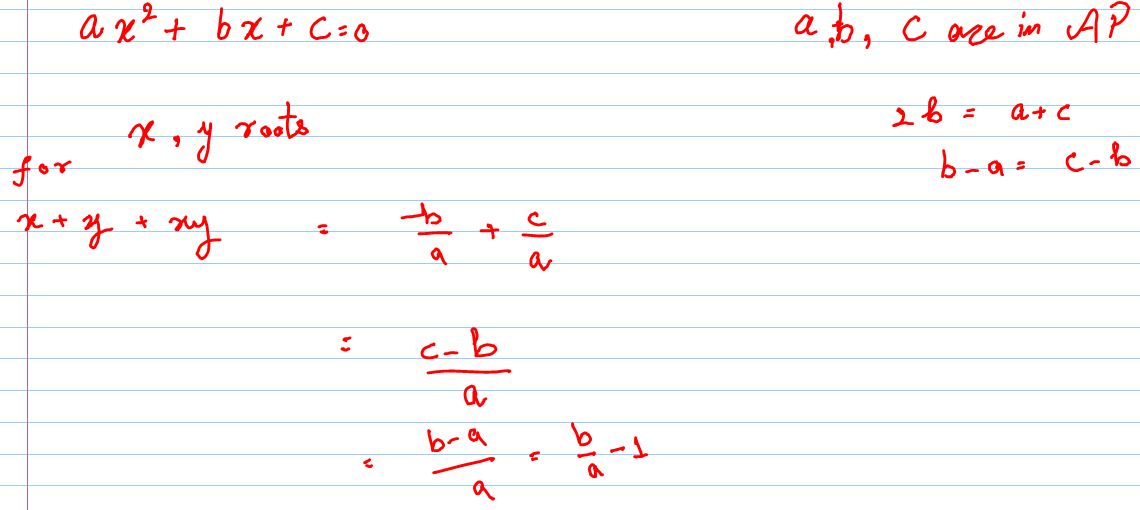 ax² + bx + c = 0
a, b, c are in AP
2b = a + c
b - a = c - b
x, y roots
for
x + y + xy = -b/a + c/a
= (c - b)/a
= (b - a)/a = b/a - 1